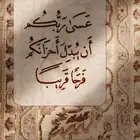 عَسَىٰ رَبُّكُم
أَن يُبَدِّلَ أَحزَانَكُم
فَرَحًا قَرِيبًا